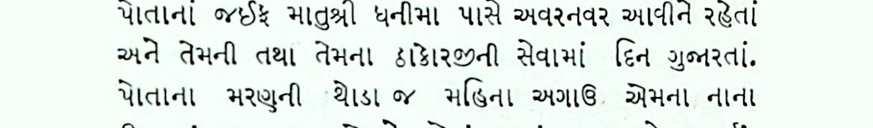 પોતાનાં જઈફ માતુશ્રી ધનીમા પાસે અવરનવર આવીને રહેતાં
અને તેમની તથા તેમના ઠાકોરજીની સેવામાં દિન ગુજારતાં.
પોતાના મરણની થોડા જ મહિના અગાઉ એમના નાના